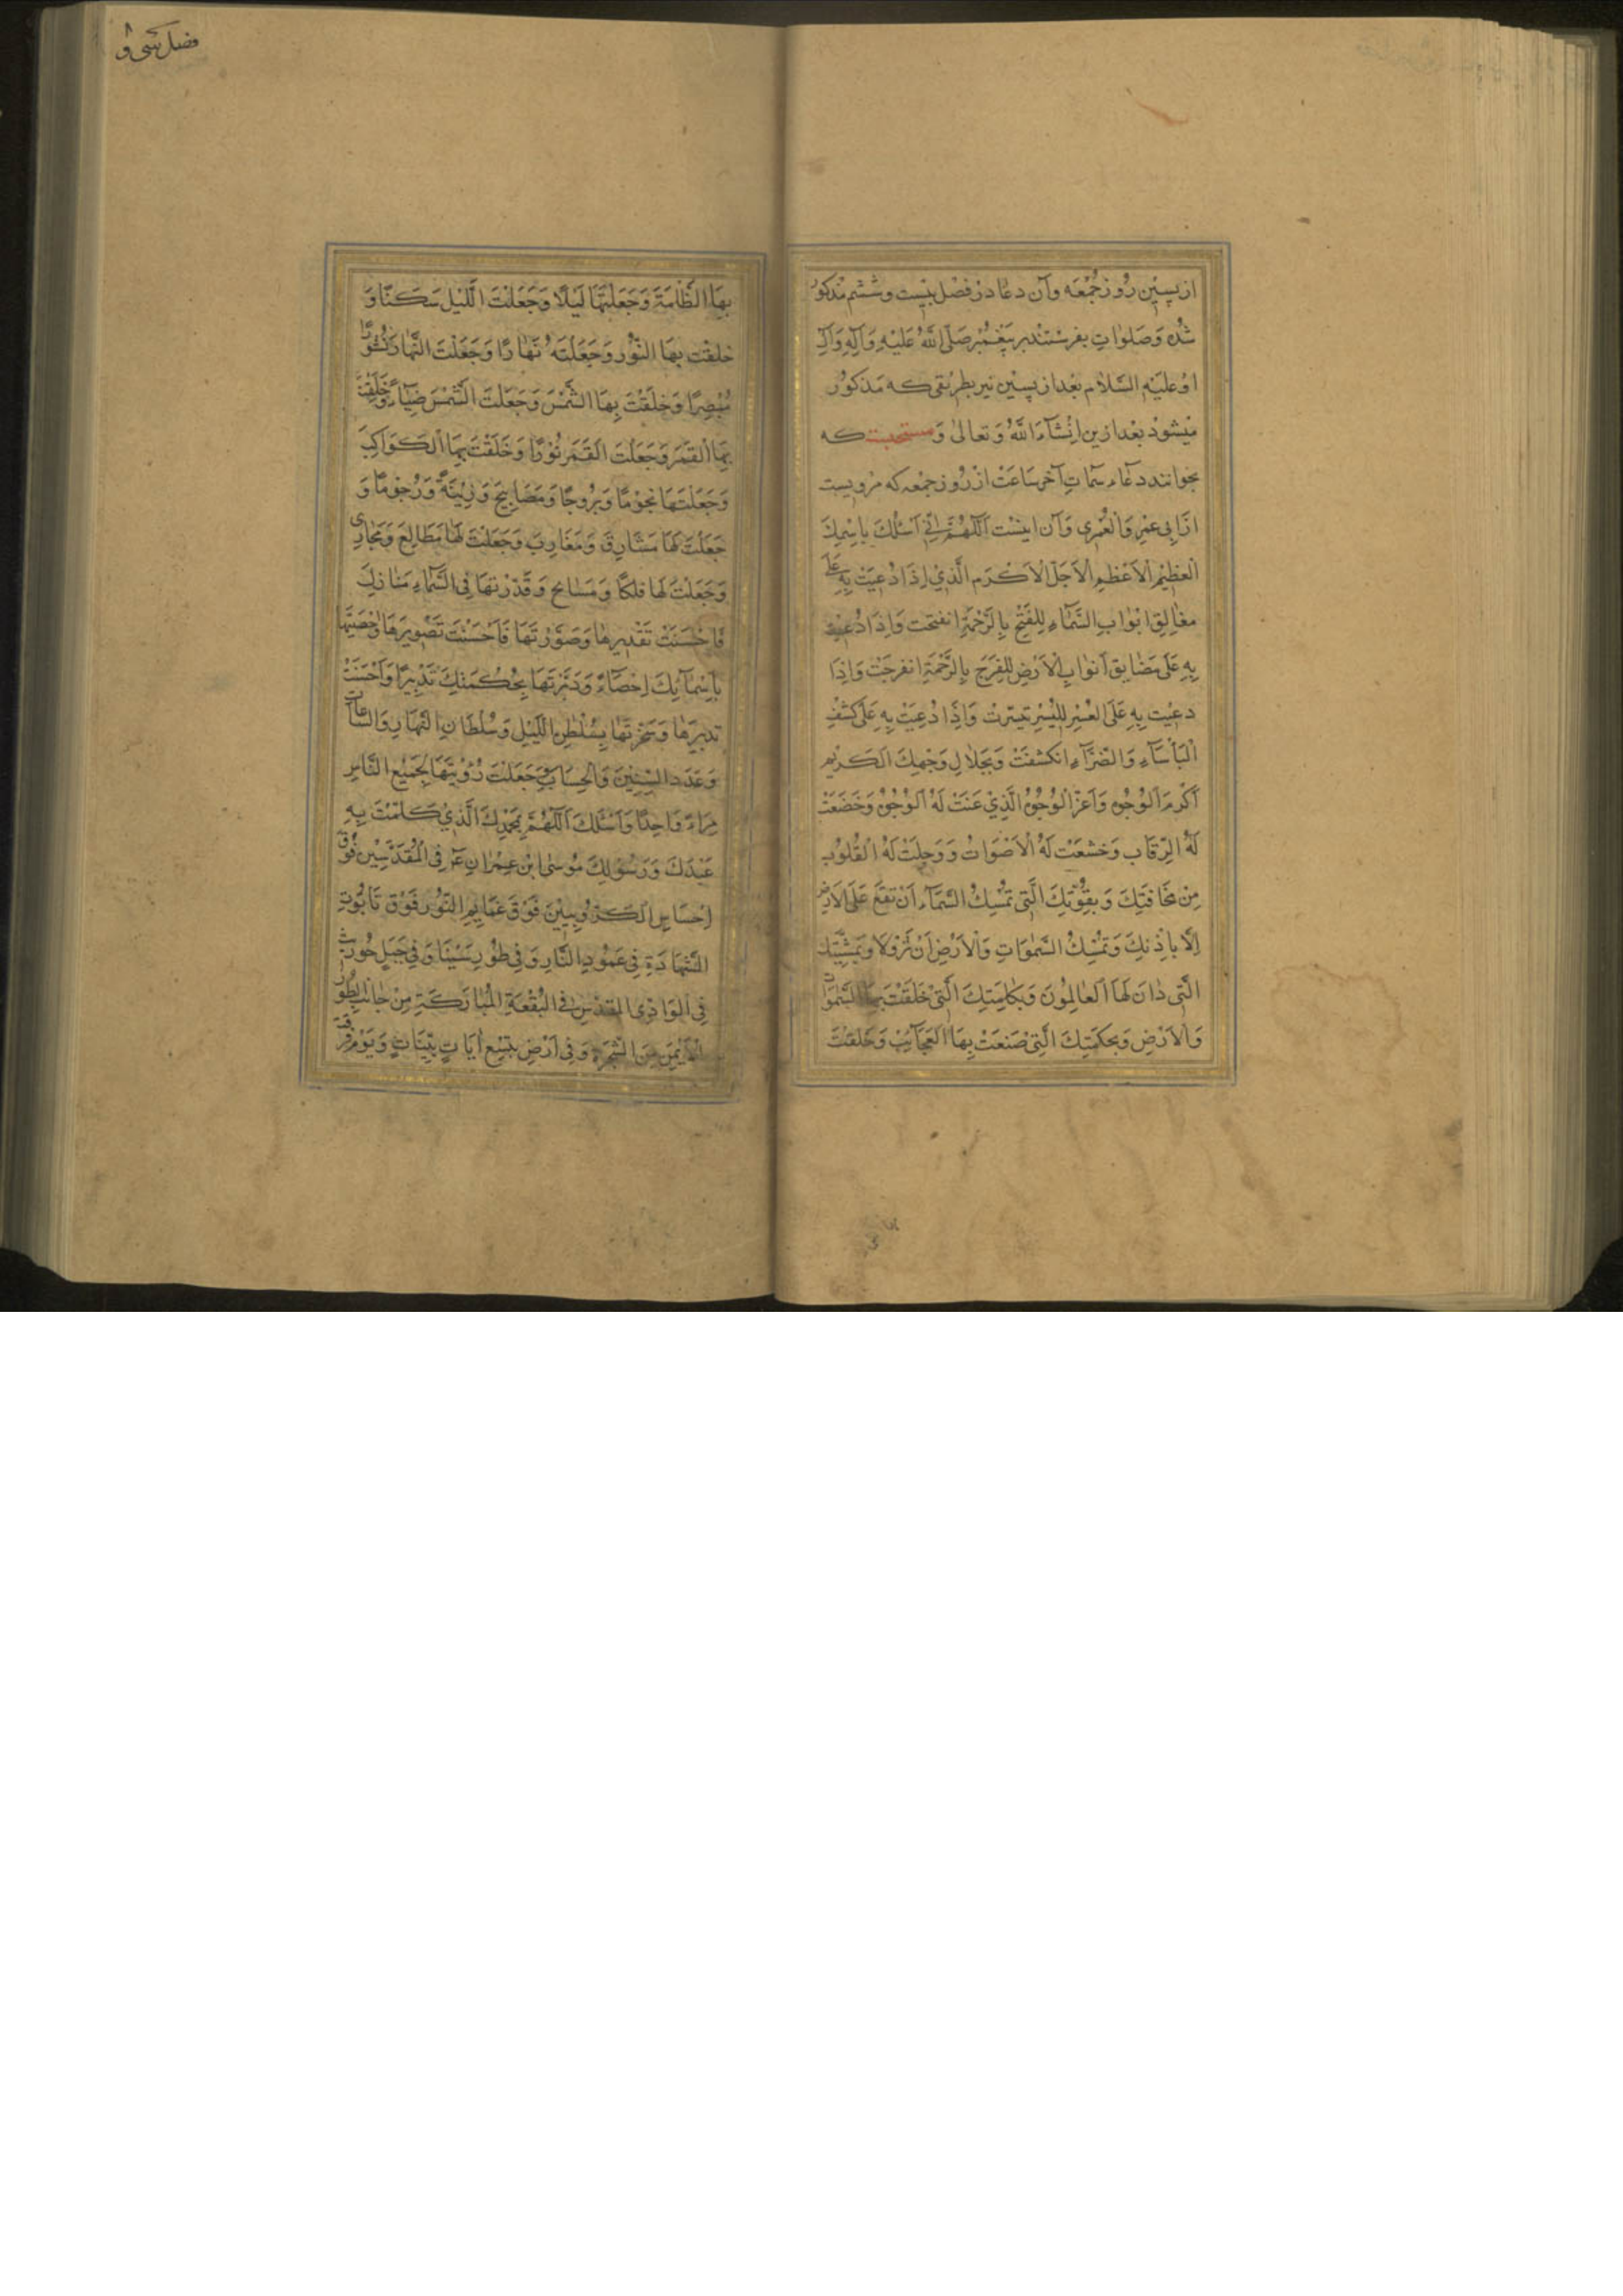 از پسین روز جمعه وآن دعا در فصل بیست و ششم مذکور
شده وَصَلَواتِ بفرستند بر پیغمبر صَلَّی اللّٰهُ عَلَیْهِ وَآلِهِ وَآلِ
او عَلَیْهِ السَّلام بعد از پسین نیز بطریقی که مذکور
میشود بعد ازین اِنْشآءَ اللّٰهُ وَتعالیٰ وَ مستحبست که
بخوانند دعآء سمات آخر ساعت از روز جمعه که مرویست
از ابی عمرِ وَالعُمری وَآن اینست اَللّٰهُمَّ اِنّی اَسْئَلُكَ بِاسْمِكَ
الْعَظِیْمِ الْاَعْظَمِ الْاَجَلِّ الْاَكْرَمِ الَّذِیْ اِذَا دُعِیْتَ بِهِ عَلَی
مَغالِقِ اَبْوابِ السَّمآءِ لِلْفَتْحِ بِالرَّحْمَةِ انفتحت وَاِذَا دُعِیْتَ
بِهِ عَلَی مَضَایِقِ اَبْوابِ الْاَرْضِ لِلْفَرَجِ بِالرَّحْمَةِ انفرجَتْ وَاِذَا
دعِیْتَ بِهِ عَلَی الْعُسْرِ لِلْیُسْرِ تیسّرتْ وَاِذَا دُعِیَتْ بِهِ عَلَی كَشْفِ
الْبَأْسَآءِ وَالضَّرَّآءِ انكشفَتْ وَبِجَلَالِ وَجْهِكَ الْكَرِیْمِ
اَكْرَمِ الْوُجُوهِ وَاَعَزِّ الْوُجُوْهِ الَّذِیْ عَنَتْ لَهُ الْوُجُوْهُ وَخَضَعَتْ
لَهُ الرِّقَاب وَخشعَتْ لَهُ الْاَصْوَاتُ وَوَجِلَتْ لَهُ الْقُلُوْبُ
مِنْ مَخَافَتِكَ وَبِقُوَّتِكَ الَّتِی تُمْسِكُ السَّمَآءَ اَنْ تَقَعَ عَلَی الْاَرْضِ
اِلَّا بِاِذْنِكَ وَتُمْسِكُ السَّمٰوَاتِ وَالْاَرْضَ اَنْ تَزُوْلَا وَبِمَشِیَّتِكَ
الَّتِی دٰانَ لَهَا الْعَالِمُونَ وَبِكَلِمَتِكَ الَّتِیْ خَلَقْتَ بِهَا السَّمٰوَاتِ
وَالْاَرْضَ وَبِحِكْمَتِكَ الَّتِیْ صَنَعْتَ بِهَا الْعَجَآئِبَ وَخَلَقْتَ
فصل سی و
بِهَا الظُّلْمَةَ وَجَعَلْتَهَا لَیْلًا وَجَعَلْتَ اللَّیْلَ سَكَنًا وَ
خلقْتَ بِهَا النُّوْرَ وَجَعَلْتَهُ نَهَارًا وَجَعَلْتَ النَّهَارَ نُشُوْرًا
مُبْصِرًا وَخَلَقْتَ بِهَا الشَّمْسَ وَجَعَلْتَ الشَّمْسَ ضِیَآءً وَخَلَقْتَ
بِهَا الْقَمَرَ وَجَعَلْتَ الْقَمَرَ نُوْرًا وَخَلَقْتَ بِهَا الْكَوَاكِبَ
وَجَعَلْتَهَا نُجُوْمًا وَبُرُوجًا وَمَصَابِیْحَ وَزِیْنَةً وَرُجُوْمًا وَ
جَعَلْتَ لَهَا مَشَارِقَ وَمَغَارِبَ وَجَعَلْتَ لَهَا مَطَالِعَ وَمَجَارِیَ
وَجَعَلْتَ لَهَا فلكًا وَمَسَابِحَ وَقَدَّرْتَهَا فِی السَّمَآءِ مَنَازِلَ
فَاَحْسَنْتَ تَقْدِیرَهَا وَصَوَّرْتَهَا فَاَحْسَنْتَ تَصْوِیرَهَا وَاَحْصَیْتَهَا
بِاَسْمَآئِكَ اِحْصَآءً وَدَبَّرْتَهَا بِحِكْمَتِكَ تَدْبِیْرًا وَاَحْسَنْتَ
تَدْبِیْرَهَا وَسَخَّرْتَهَا بِسُلْطَانِ اللَّیْلِ وَسُلْطَانِ النَّهَارِ وَالسَّاعَاتِ
وَعَدَدَ السِّنِیْنَ وَالْحِسَابِ وَجَعَلْتَ رُؤْیَتَهَا لِجَمِیْعِ النَّاسِ
مَرْاءً وَاحِدًا وَاَسْئَلُكَ اَللّٰهُمَّ بِمَجْدِكَ الَّذِیْ كَلَّمْتَ بِهِ
عَبْدَكَ وَرَسُوْلَكَ مُوْسَی ابْنَ عِمْرَانَ عَ فِی الْمُقَدَّسِیْنَ فَوْقَ
اِحْسَاسِ الْكَرُّوْبِیِیْنَ فَوْقَ غَمَایِمِ النُّوْرِ فَوْقَ تَابُوْتِ
الشَّهَادَةِ فِی عَمُوْدِ النَّارِ وَفِی طُوْرِ سَیْنَآءَ وَفِی جَبَلِ حُورِیْثَ
فِی الْوَادِی الْمُقَدَّسِ فِی الْبُقْعَةِ الْمُبَارَكَةِ مِنْ جَانِبِ الطُّوْرِ
الْاَیْمَنِ مِنَ الشَّجَرَةِ وَفِی اَرْضِ بِتِسْعِ اٰیَاتٍ بَیِّنَاتٍ وَیَوْمَ فَرَقْتَ